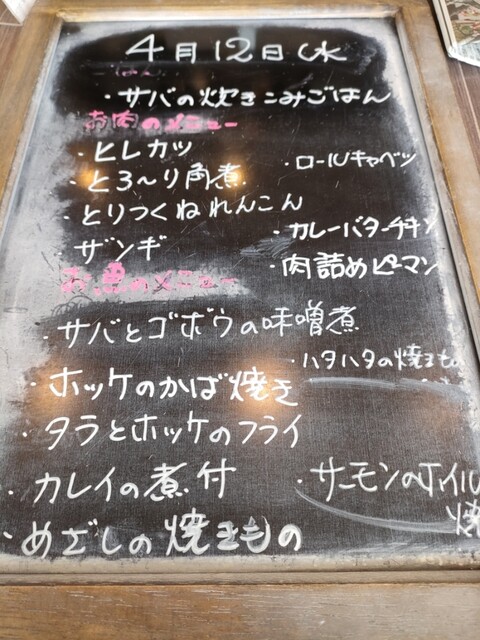 4月12日(水
ごはん
・サバの炊きこみごはん
お肉のメニュー
・ヒレカツ
・ロールキャベツ
・とろ〜り角煮
・とりつくねれんこん
・カレーバターチキン
・ザンギ
・肉詰めピーマン
お魚のメニュー
・サバとゴボウの味噌煮
・ハタハタの焼きもの
・ホッケのかば焼き
・タラとホッケのフライ
・カレイの煮付
・サーモンのホイル
焼
・めざしの焼きもの